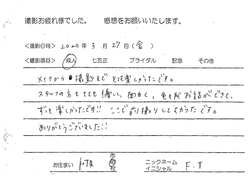 撮影お疲れ様でした。 感想をお願いいたします。
<撮影日時> 2020年 3月 27日(金)
<撮影項目> 成人 七五三 ブライダル 記念 その他
メイクから撮影まで とても楽しかったです。
スタッフの方もとても優しく、面白く、色々お話ができて、
ずっと楽しかったです!! ここで前撮りしてよかったです。
ありがとうございました!!
お住まい 市 ニックネーム
イニシャル F.T